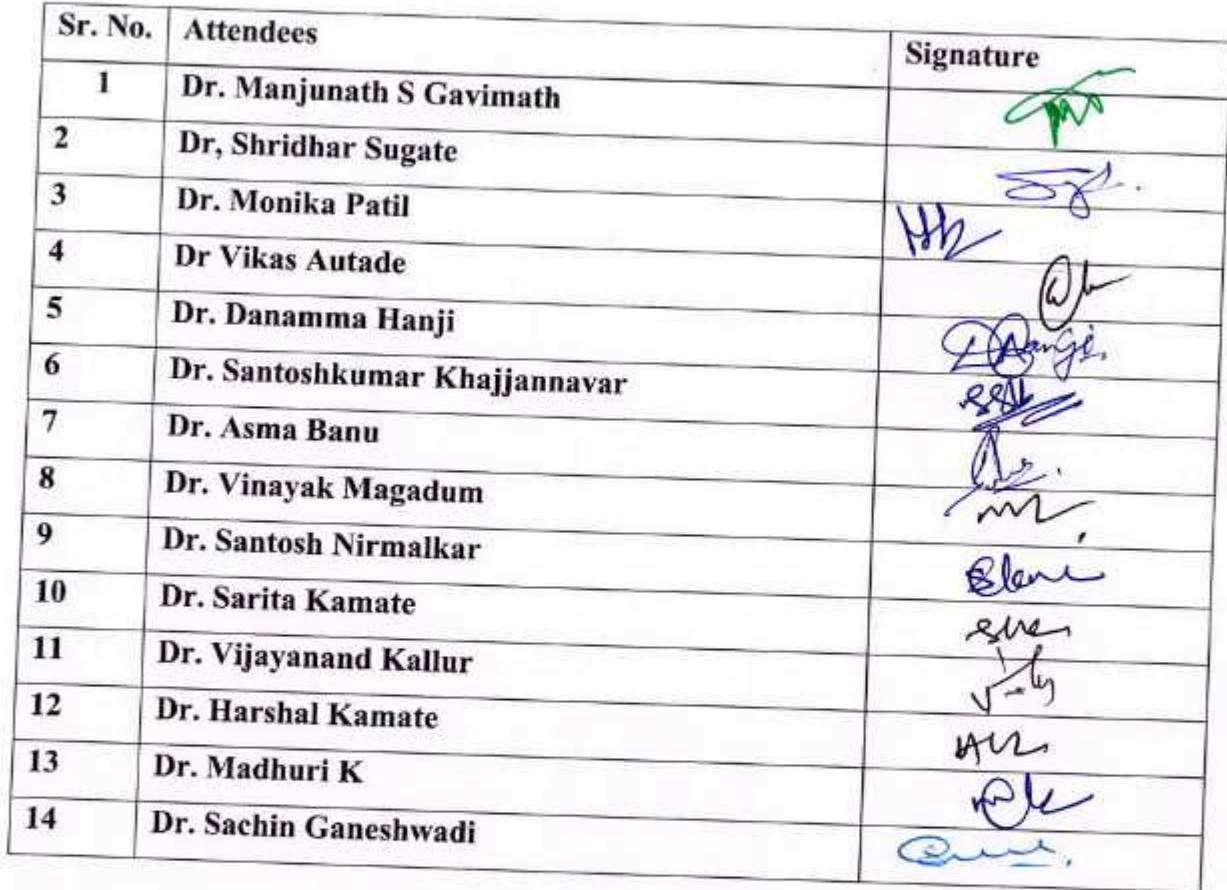 Sr. No. Attendees Signature
1 Dr. Manjunath S Gavimath
2 Dr, Shridhar Sugate
3 Dr. Monika Patil
4 Dr Vikas Autade
5 Dr. Danamma Hanji
6 Dr. Santoshkumar Khajjannavar
7 Dr. Asma Banu
8 Dr. Vinayak Magadum
9 Dr. Santosh Nirmalkar
10 Dr. Sarita Kamate
11 Dr. Vijayanand Kallur
12 Dr. Harshal Kamate
13 Dr. Madhuri K
14 Dr. Sachin Ganeshwadi